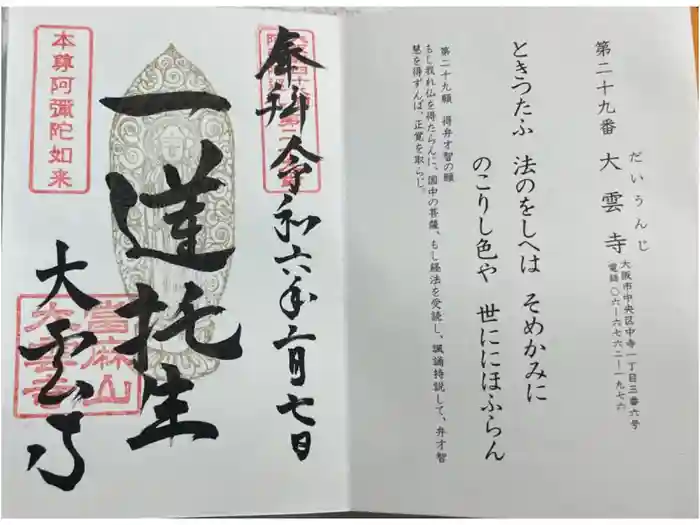 第二十九番 大雲寺
だいうんじ
大阪市中央区中寺一丁目三番六号
電話〇六ー六七六二ー一九七六
ときつたふ 法のをしへは そめかみに
のこりし色や 世ににほふらん
第二十九願 得弁才智の願
もし我れ仏を得たらんに、国中の菩薩、もし経法を受読し、諷誦持説して、弁才智
慧を得ずんば、正覚を取らじ。
奉拝 令和六年二月七日
一蓮托生
大雲寺
本尊阿彌陀如来
當麻山
大雲寺